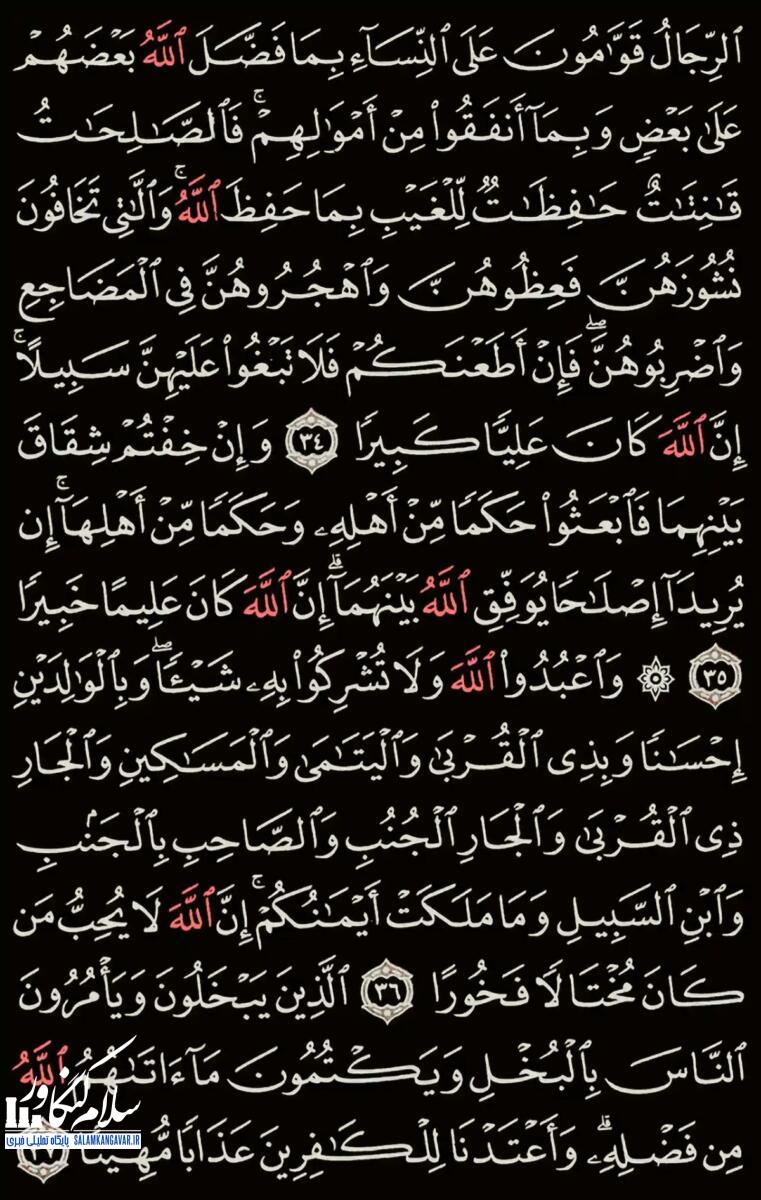 ٱلرِّجَالُ قَوَّٰمُونَ عَلَى ٱلنِّسَآءِ بِمَا فَضَّلَ ٱللَّهُ بَعۡضَهُمۡ
عَلَىٰ بَعۡضٖ وَبِمَآ أَنفَقُواْ مِنۡ أَمۡوَٰلِهِمۡۚ فَٱلصَّٰلِحَٰتُ
قَٰنِتَٰتٌ حَٰفِظَٰتٞ لِّلۡغَيۡبِ بِمَا حَفِظَ ٱللَّهُۚ وَٱلَّٰتِي تَخَافُونَ
نُشُوزَهُنَّ فَعِظُوهُنَّ وَٱهۡجُرُوهُنَّ فِي ٱلۡمَضَاجِعِ
وَٱضۡرِبُوهُنَّۖ فَإِنۡ أَطَعۡنَكُمۡ فَلَا تَبۡغُواْ عَلَيۡهِنَّ سَبِيلًاۚ
إِنَّ ٱللَّهَ كَانَ عَلِيّٗا كَبِيرٗا ٣٤ وَإِنۡ خِفۡتُمۡ شِقَاقَ
بَيۡنِهِمَا فَٱبۡعَثُواْ حَكَمٗا مِّنۡ أَهۡلِهِۦ وَحَكَمٗا مِّنۡ أَهۡلِهَآۚ إِن
يُرِيدَآ إِصۡلَٰحٗا يُوَفِّقِ ٱللَّهُ بَيۡنَهُمَآۗ إِنَّ ٱللَّهَ كَانَ عَلِيمًا خَبِيرٗا
٣٥ ۞ وَٱعۡبُدُواْ ٱللَّهَ وَلَا تُشۡرِكُواْ بِهِۦ شَيۡـٔٗاۖ وَبِٱلۡوَٰلِدَيۡنِ
إِحۡسَٰنٗا وَبِذِي ٱلۡقُرۡبَىٰ وَٱلۡيَتَٰمَىٰ وَٱلۡمَسَٰكِينِ وَٱلۡجَارِ
ذِي ٱلۡقُرۡبَىٰ وَٱلۡجَارِ ٱلۡجُنُبِ وَٱلصَّاحِبِ بِٱلۡجَنۢبِ
وَٱبۡنِ ٱلسَّبِيلِ وَمَا مَلَكَتۡ أَيۡمَٰنُكُمۡۚ إِنَّ ٱللَّهَ لَا يُحِبُّ مَن
كَانَ مُخۡتَالٗا فَخُورًا ٣٦ ٱلَّذِينَ يَبۡخَلُونَ وَيَأۡمُرُونَ
ٱلنَّاسَ بِٱلۡبُخۡلِ وَيَكۡتُمُونَ مَآ ءَاتَىٰهُمُ ٱللَّهُ
مِن فَضۡلِهِۦۗ وَأَعۡتَدۡنَا لِلۡكَٰفِرِينَ عَذَابٗا مُّهِينٗا ٣٧
سلام کنگاور
پایگاه تحلیلی خبری SALAMKANGAVAR.IR